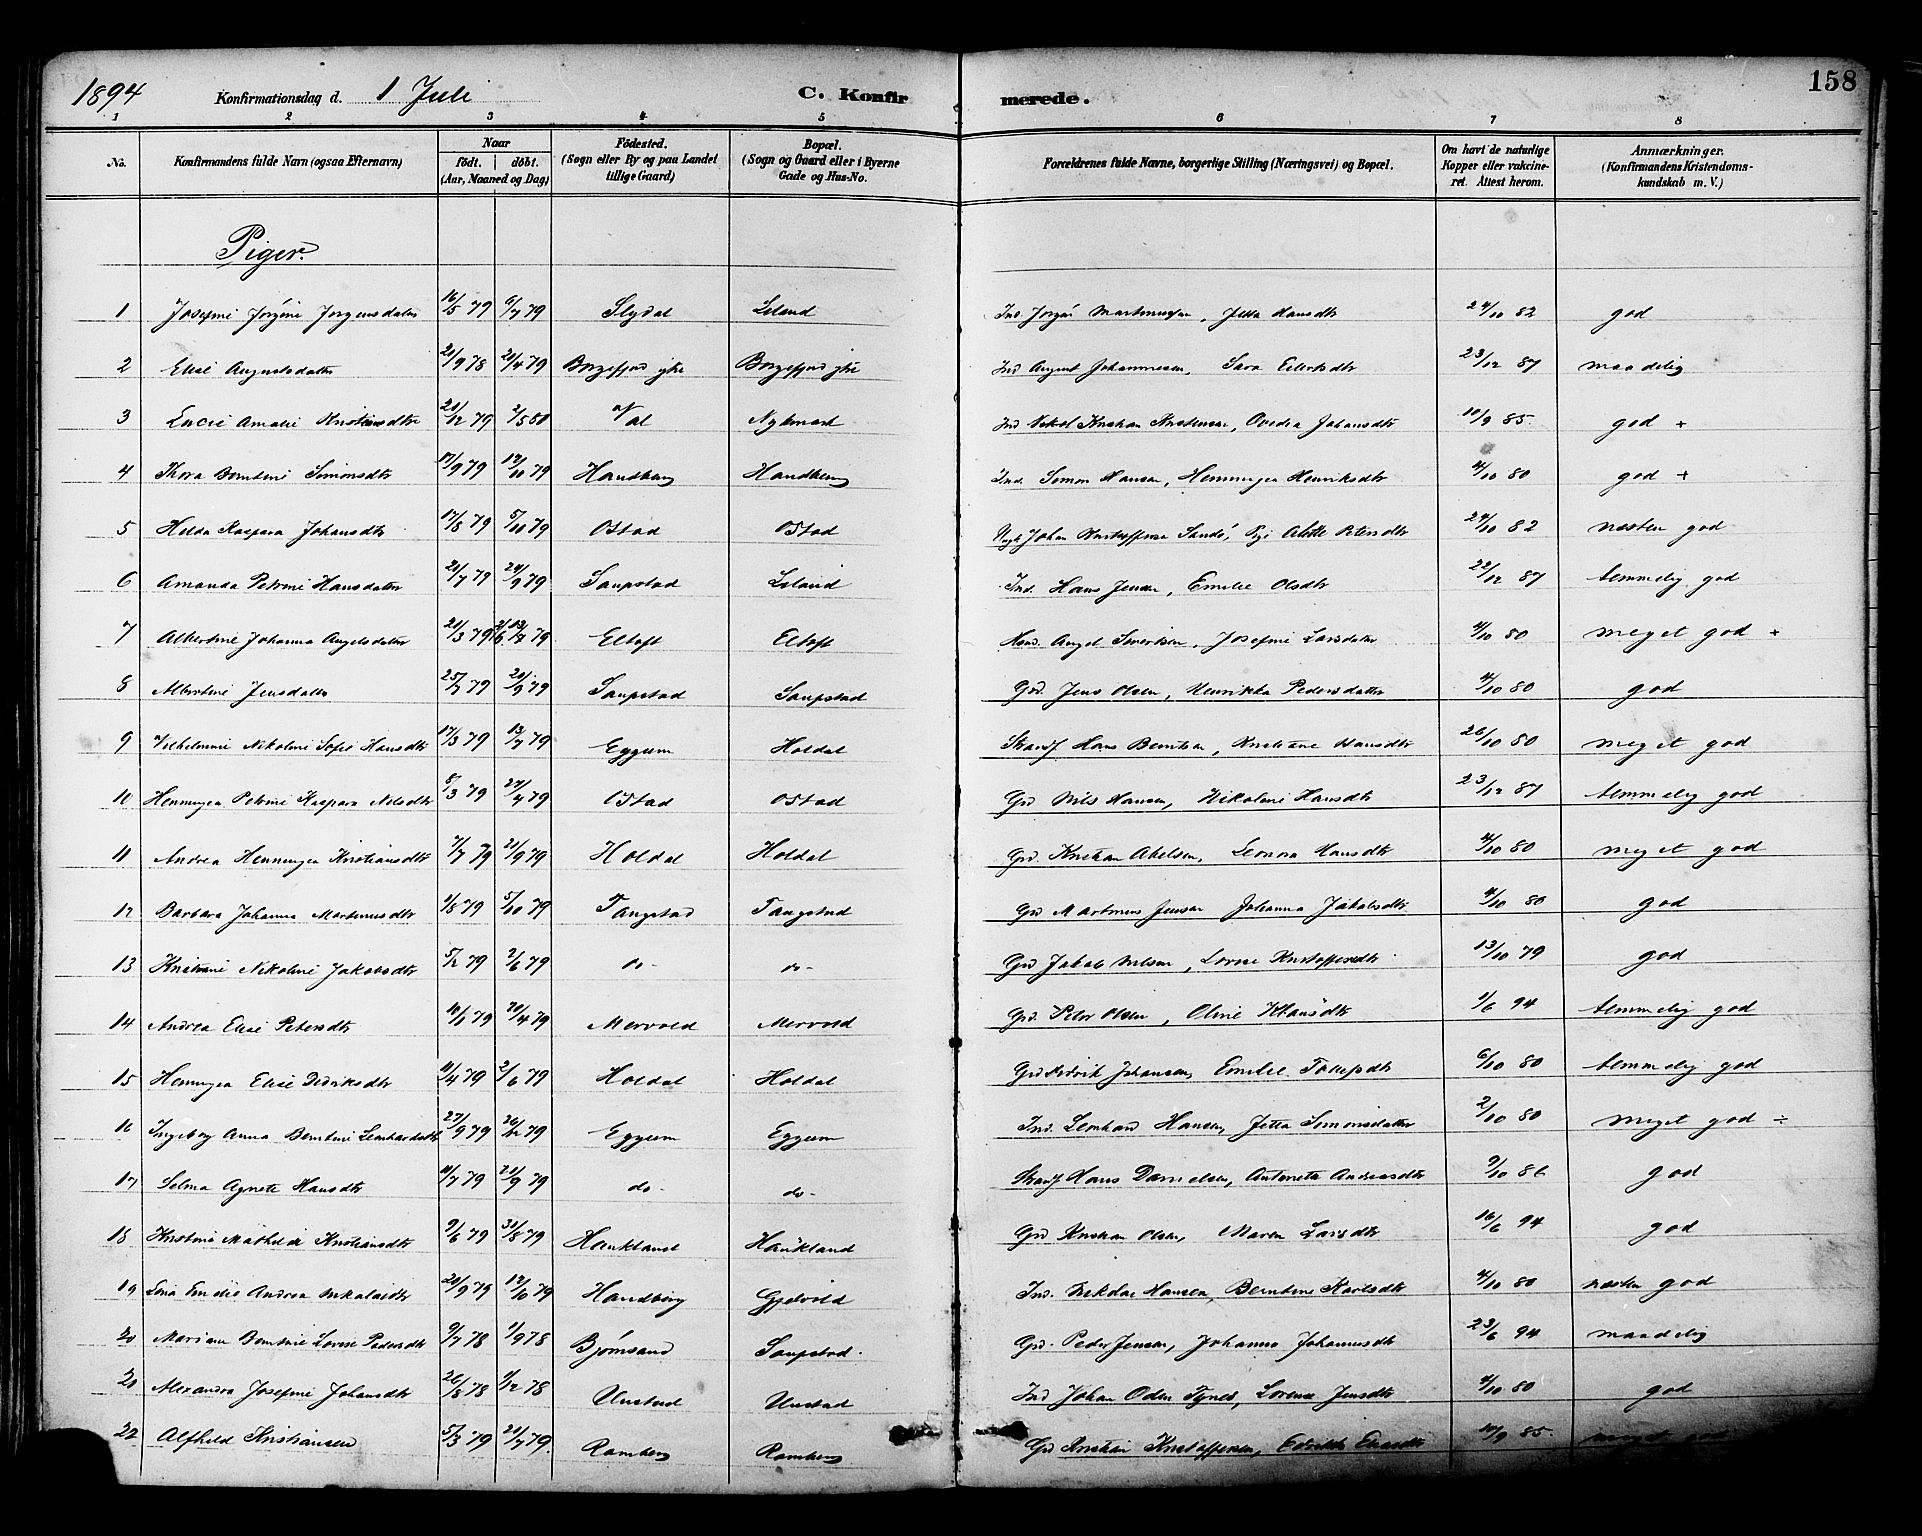 1894 Konfirmationsdag d. 1 Juli C. Konfirmerede. 158
1 2 3 4 5 6 7 8
No. Konfirmandens fulde Navn (ogsaa Efternavn) Naar födt. döbt. (Aar, Maaned og Dag) Födested. (Sogn eller By og paa Landet tillige Gaard) Bopæl. (Sogn og Gaard eller i Byerne Gade og Hus-No. Forældrenes fulde Navne, borgerlige Stilling (Næringsvei) og Bopæl. Om havt de naturlige Kopper eller vakcineret. Attest herom. Anmærkninger. (Konfirmandens Kristendomskundskab m. V.)
Piger.
1 Josefine Jörgine Jörgensdatter 16/5 79 6/7 79 Slydal Leland Ind. Hansdtr 24/10 82 god
2 Elise Augustsdatter 21/9 78 21/4 79 Borgefjord ytre Borgefjord ytre Ind August Johannessen, Sara Eilertsdtr 23/12 87 maadelig
3 Lucie Amalie Kristiansdtr 21/12 79 2/5 80 Val Ind Nikol Kristian Kristensen, Ovedia Johansdtr 10/9 85 god +
4 Thora Berntine Simonsdtr 17/9 79 12/10 79 Handberg Handberg Ind. Simon Hansen, Henningea Henriksdtr 4/10 80 god +
5 Helda Kaspara Johansdtr 17/8 79 5/10 79 Ostad Ostad Johan Kristoffersen Sandö, Pige Alette Petersdtr 24/10 82 næsten god
6 Amanda Petrine Hansdatter 21/7 79 21/9 79 Saupstad Leland Ind. Hans Jensen, Emilie Olsdtr 22/12 87 temmelig god
7 Albertine Johanna Angelsdatter 21/3 79 79 Eltoft Eltoft Angel Sivertsen, Josefine Larsdatter 4/10 80 meget god +
8 Albertine Jensdatter 25/7 79 21/9 79 Saupstad Saupstad Grd. Jens Olsen, Henrikka Pedersdatter 4/10 80 god
9 Vilhelmine Nikoline Sofie Hansdtr 17/3 79 13/7 79 Eggum Holdal Hans Berntsen, Kristiane Hansdtr 26/10 80 meget god
10 Henningea Petrine Kaspara Nilsdtr 8/3 79 27/4 79 Ostad Ostad Grd Nils Hansen, Nikoline Hansdtr 23/12 87 temmelig god
11 Andrea Henningea Kristiansdtr 7/7 79 21/9 79 Holdal Holdal Grd. Kristian Abelsen, Leonora Hansdtr 4/10 80 meget god
12 Barbara Johanna Martinusdtr 1/8 79 5/10 79 Tangstad Tangstad Grd Martinus Jensen Johanna Jakobsdtr 4/10 80 god
13 Kristiane Nikoline Jakobsdtr 5/2 79 2/6 79 do- do- Grd Jakob Nilsen, Lovise Kristoffersdtr 13/10 79 god
14 Andrea Elise Petersdtr 79 20/4 79 Mervold Mervold Grd. Peter Olsen, Oline Klausdtr 1/6 94 temmelig god
15 Henningea Elise Didriksdtr 11/4 79 2/6 79 Holdal Holdal Grd Didrik Johansen, Emilie 6/10 80 temmelig god
16 Ingeborg Anna Berntine Lenhardsdtr 27/9 79 26/12 79 Eggum Eggum Ind. Lenhard Hansen, Jetta Simonsdatter 2/10 80 meget god ÷
17 Selma Agnete Hansdtr 11/7 79 21/9 79 do- do- Hans Danielsen, Antoneta Andreasdtr 9/10 86 god
18 Kristine Mathilde Kristiansdtr 9/6 79 31/8 79 Haukland Haukland Grd Kristian Olsen, Maren Larsdtr 16/6 94 god
19 Lina Emilie Andrea Nikolaisdtr 21/9 79 12/10 79 Handberg Gjelvold Ind. Nikolai Hansen, Berntine Karlsdtr 4/10 80 næsten god
20 Mariane Berntine Lovise Pedersdtr 9/7 78 1/9 78 Björnsand Saupstad. Grd. Peder Jensen, Johanna Johannesdtr 23/6 94 maadelig
20 Alexandra Josefine Johansdtr 26/8 78 1/12 78 Unstad Unstad Ind Johan Oden Tynes, Lorense Jensdtr 4/10 80 god
22 Alfhild Kristiansen 5/3 79 21/7 79. Ramberg Ramberg Grd Kristian Kristoffersen, 10/9 85 meget god